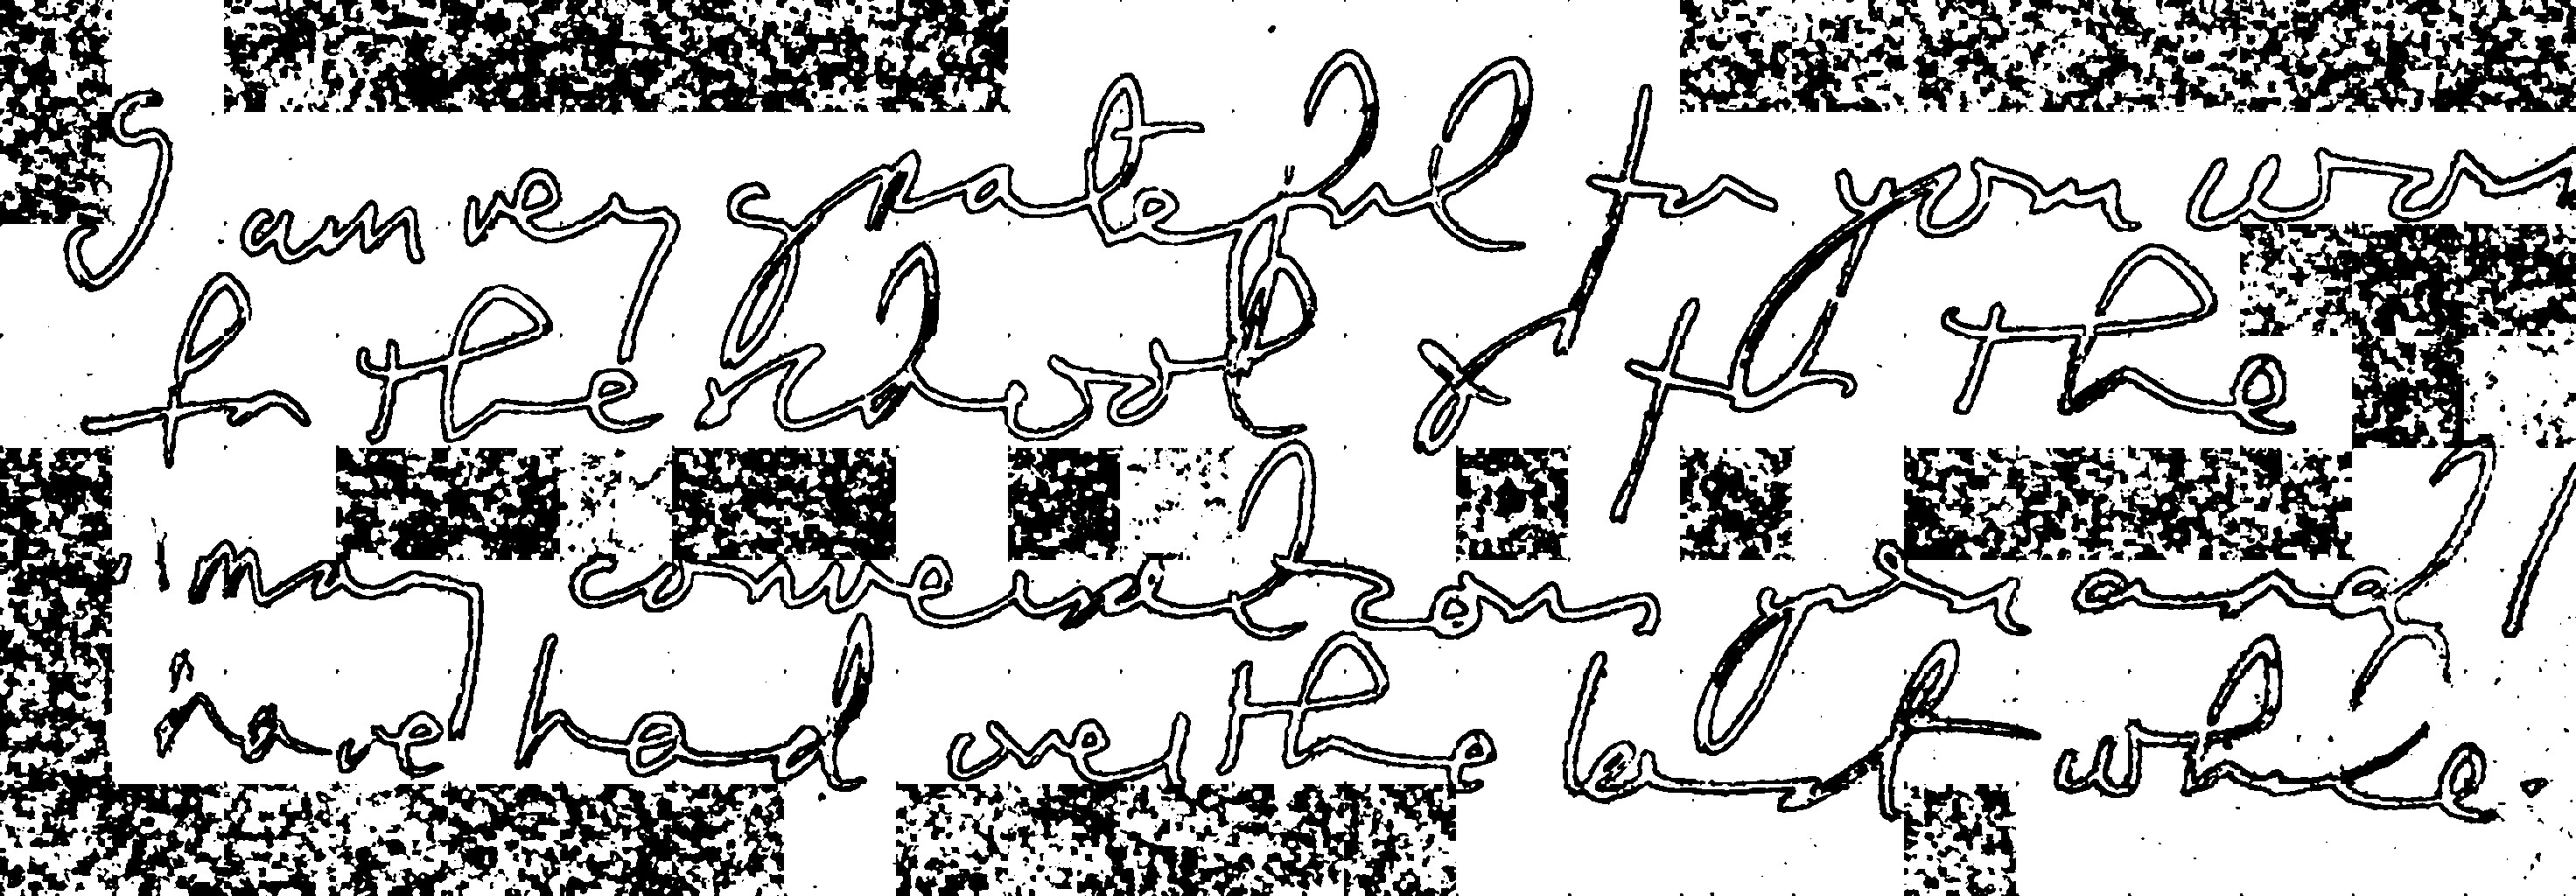 I am very grateful to you
for the school & to the
many conversations you and I
have had over the last while.